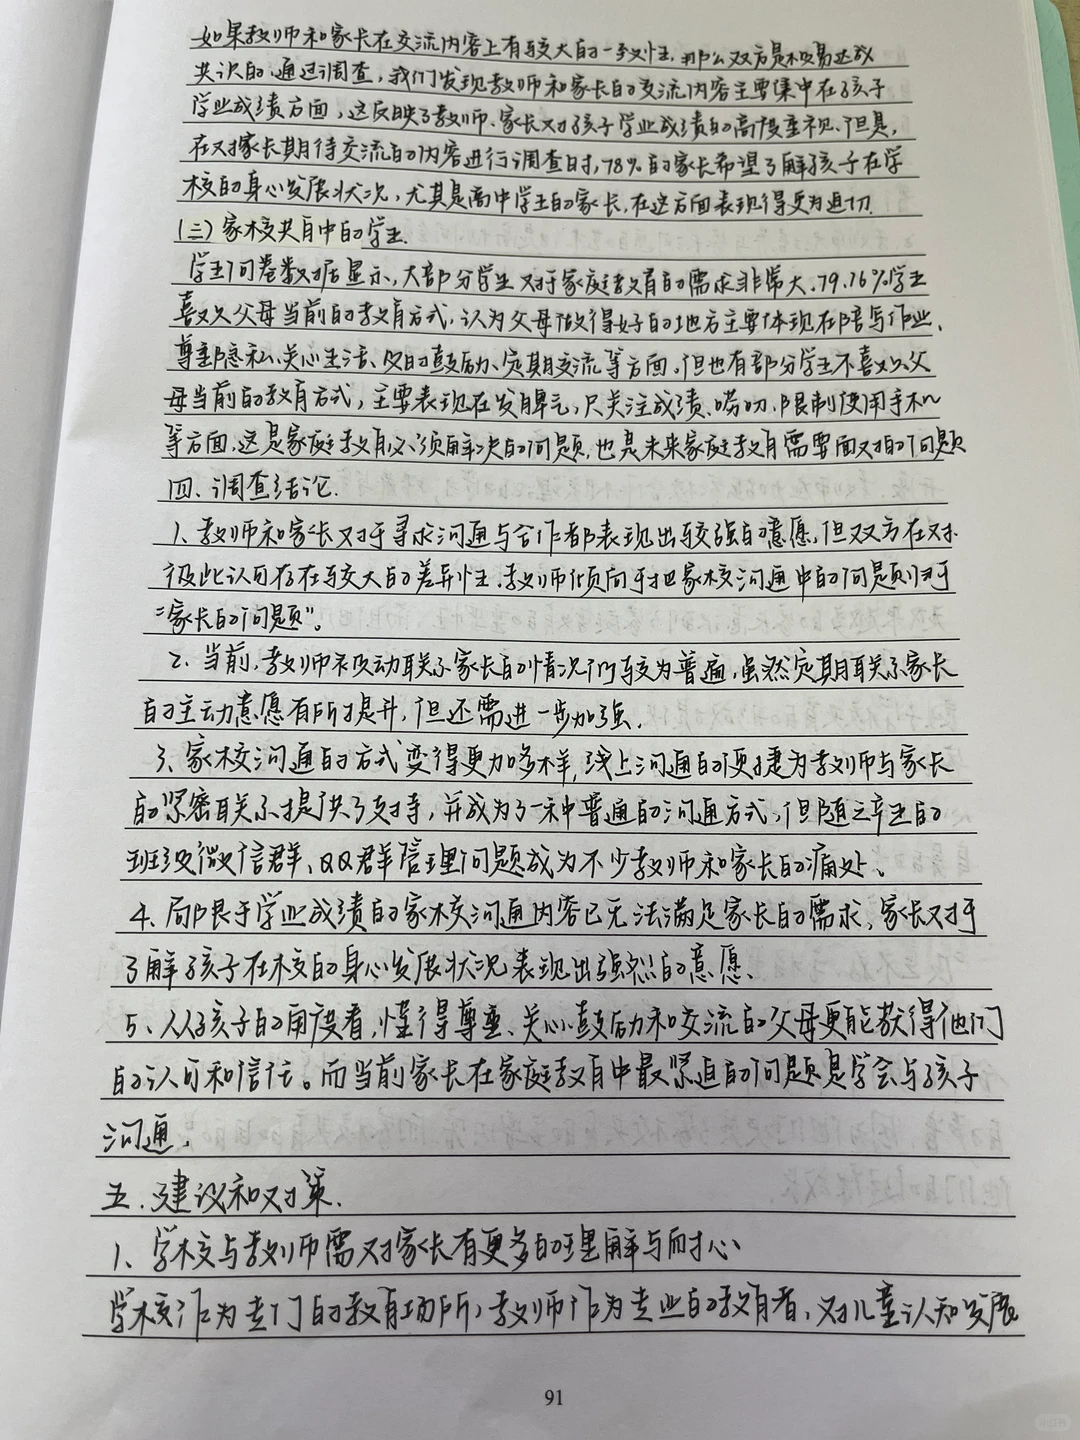 如果教师和家长在交流内容上有较大的一致性，那么双方是极易达成
共识的。通过调查，我们发现教师和家长的交流内容主要集中在孩子
学业成绩方面，这反映了教师、家长对孩子学业成绩的高度重视。但是，
在对家长期待交流的内容进行调查时，78%的家长希望了解孩子在学
校的身心发展状况，尤其是高中学生的家长，在这方面表现得更为迫切.
(三)家校共育中的学生.
学生问卷数据显示，大部分学生对于家庭教育的需求非常大.79.16%学生
喜欢父母当前的教育方式，认为父母做得好的地方主要体现在陪写作业、
尊重隐私、关心生活、及时鼓励、定期交流等方面。但也有部分学生不喜欢父
母当前的教育方式，主要表现在发脾气，只关注成绩、唠叨、限制使用手机
等方面，这是家庭教育必须解决的问题，也是未来家庭教育需要面对的问题
四、调查结论.
1、教师和家长对于寻求沟通与合作都表现出较强的意愿，但双方在对
彼此认可存在较大的差异性.教师倾向于把家校沟通中的问题归于
“家长的问题”。
2、当前，教师被动联系家长的情况仍较为普遍，虽然定期联系家长
的主动意愿有所提升，但还需进一步加强.
3、家校沟通的方式变得更加多样，线上沟通的便捷为教师与家长
的紧密联系提供了支持，并成为了一种普通的沟通方式，但随之产生的
班级微信群、QQ群管理问题成为不少教师和家长的痛处、
4、局限于学业成绩的家校沟通内容已无法满足家长的需求，家长对于
了解孩子在校的身心发展状况表现出强烈的意愿、
5、从孩子的角度看，懂得尊重、关心、鼓励和交流的父母更能获得他们
的认可和信任。而当前家长在家庭教育中最紧迫的问题是学会与孩子
沟通.
五.建议和对策.
1、学校与教师需对家长有更多的理解与耐心
学校作为专门的教育场所，教师作为专业的教育者，对儿童认知发展
91